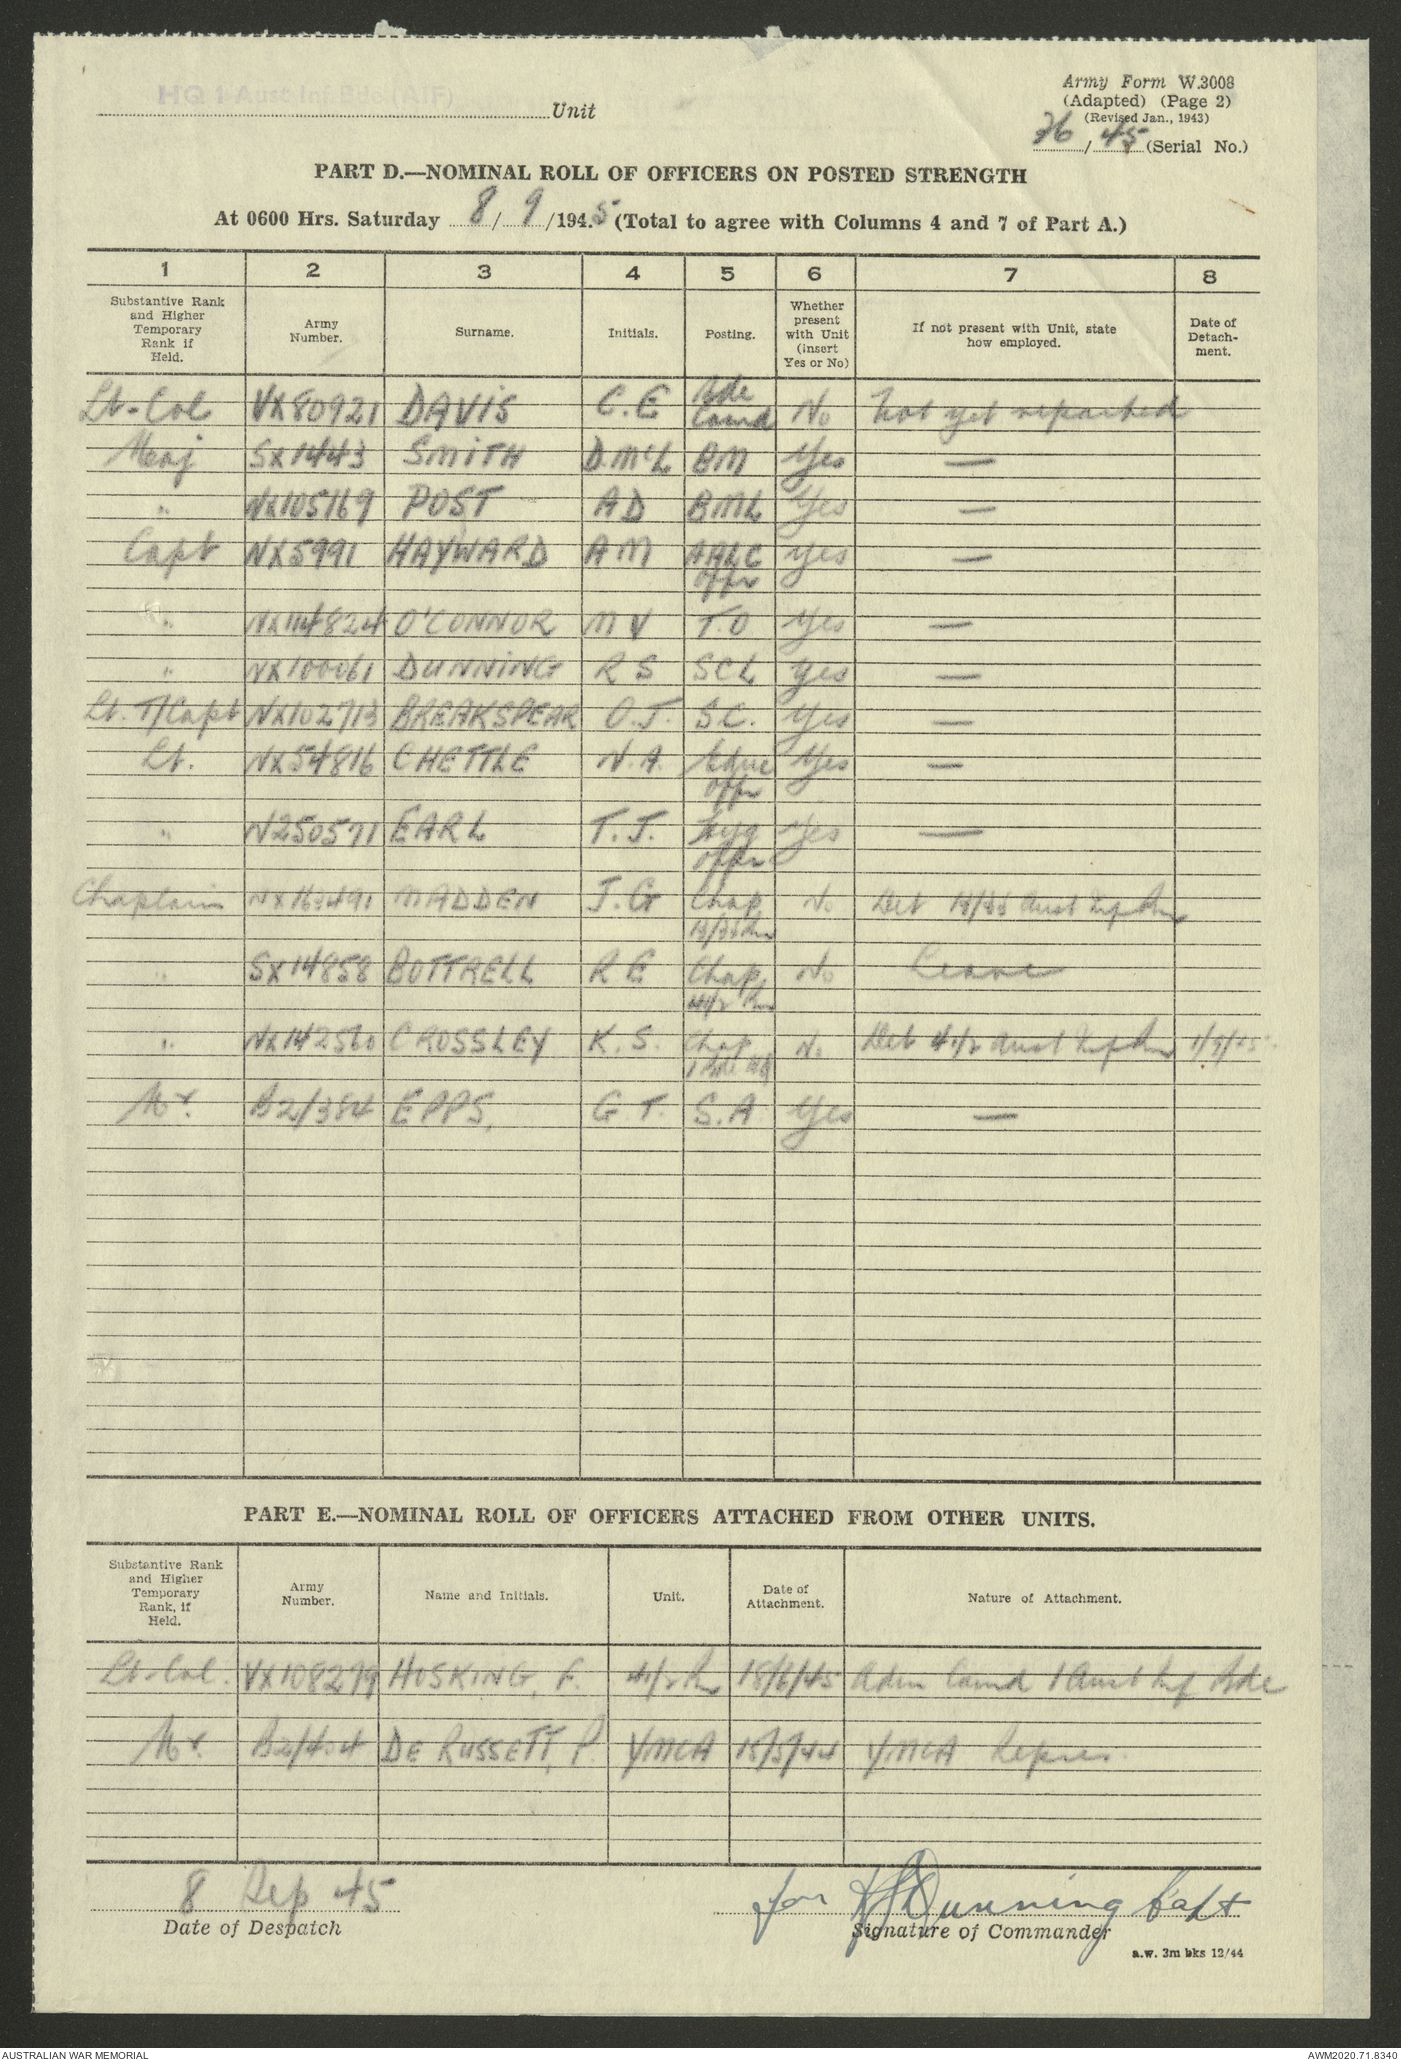 HQ 1 Aust Inf Bde (AIF)
Unit
Army Form W.3008
(Adapted) (Page 2)
(Revised Jan., 1943)
36/45 (Serial No.)
PART D.—NOMINAL ROLL OF OFFICERS ON POSTED STRENGTH
At 0600 Hrs. Saturday 8/9/1945 (Total to agree with Columns 4 and 7 of Part A.)
1 2 3 4 5 6 7 8
Substantive Rank and Higher Temporary Rank if Held. Army Number. Surname. Initials. Posting. Whether present with Unit (Insert Yes or No) If not present with Unit, state how employed. Date of Detach-ment.
Lt-Col VX80921 DAVIS C.E Bde Comd No Not yet reported
Maj SX1443 SMITH D.McL BM Yes —
" NX105169 POST A D BML Yes —
Capt NX5991 HAYWARD A M AALC Offr Yes —
" NX114824 O'CONNOR M V T.O Yes —
" NX100061 DUNNING R S SCL Yes —
Lt. T/Capt NX102713 BREAKSPEAR O.J. S.C. Yes —
Lt. NX54816 CHETTLE N.A. Educ Offr Yes —
" N250571 EARL T.J. Hyg Offr Yes —
Chaplain MADDEN J.G Chap No Det Aust Inf Bn
" SX14858 BOTTRELL R E Chap 41/2 Bn No Leave
" NX142560 CROSSLEY K.S. Chap 1 Bde HQ No Det 41/2 Aust Inf Bn 1/9/45
Mr. B2/384 EPPS. G T. S.A Yes —
PART E.—NOMINAL ROLL OF OFFICERS ATTACHED FROM OTHER UNITS.
Substantive Rank and Higher Temporary Rank, if Held. Army Number. Name and Initials. Unit. Date of Attachment. Nature of Attachment.
Lt-Col. VX108279 HOSKING, F. 41/2 Bn 18/6/45 Adm Comd 1 Aust Inf Bde
Mr. B2/404 DE RUSSETT, P. YMCA 15/5/44 YMCA Repres.
8 Sep 45
Date of Despatch
for RSDunning Capt
Signature of Commander
a.w. 3m bks 12/44
AUSTRALIAN WAR MEMORIAL
AWM2020.71.8340